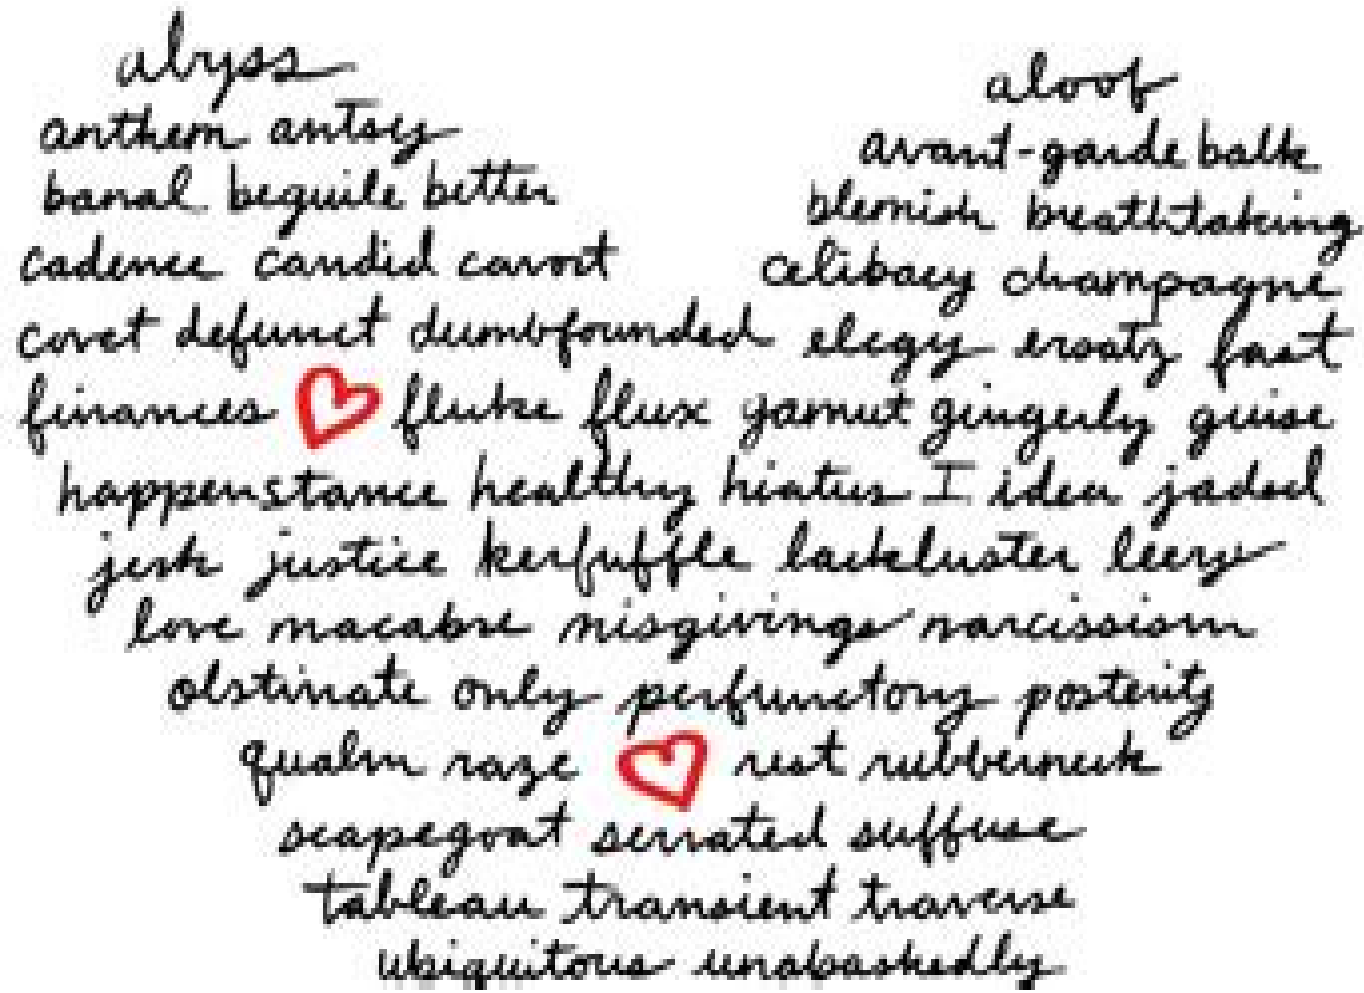 abyss aloof
anthem antsy avant-garde balk
banal beguile better blemish breathtaking
cadence candid cavort celibacy champagne
covet defunct dumbfounded elegy ersatz fast
finances fluke flux gamut gingerly guise
happenstance healthy hiatus I idea jaded
jerk justice kerfuffle lackluster leery
love macabre misgivings narcissism
obstinate only perfunctory posterity
qualm raze rest rubberneck
scapegoat serrated suffuse
tableau transient traverse
ubiquitous unabashedly